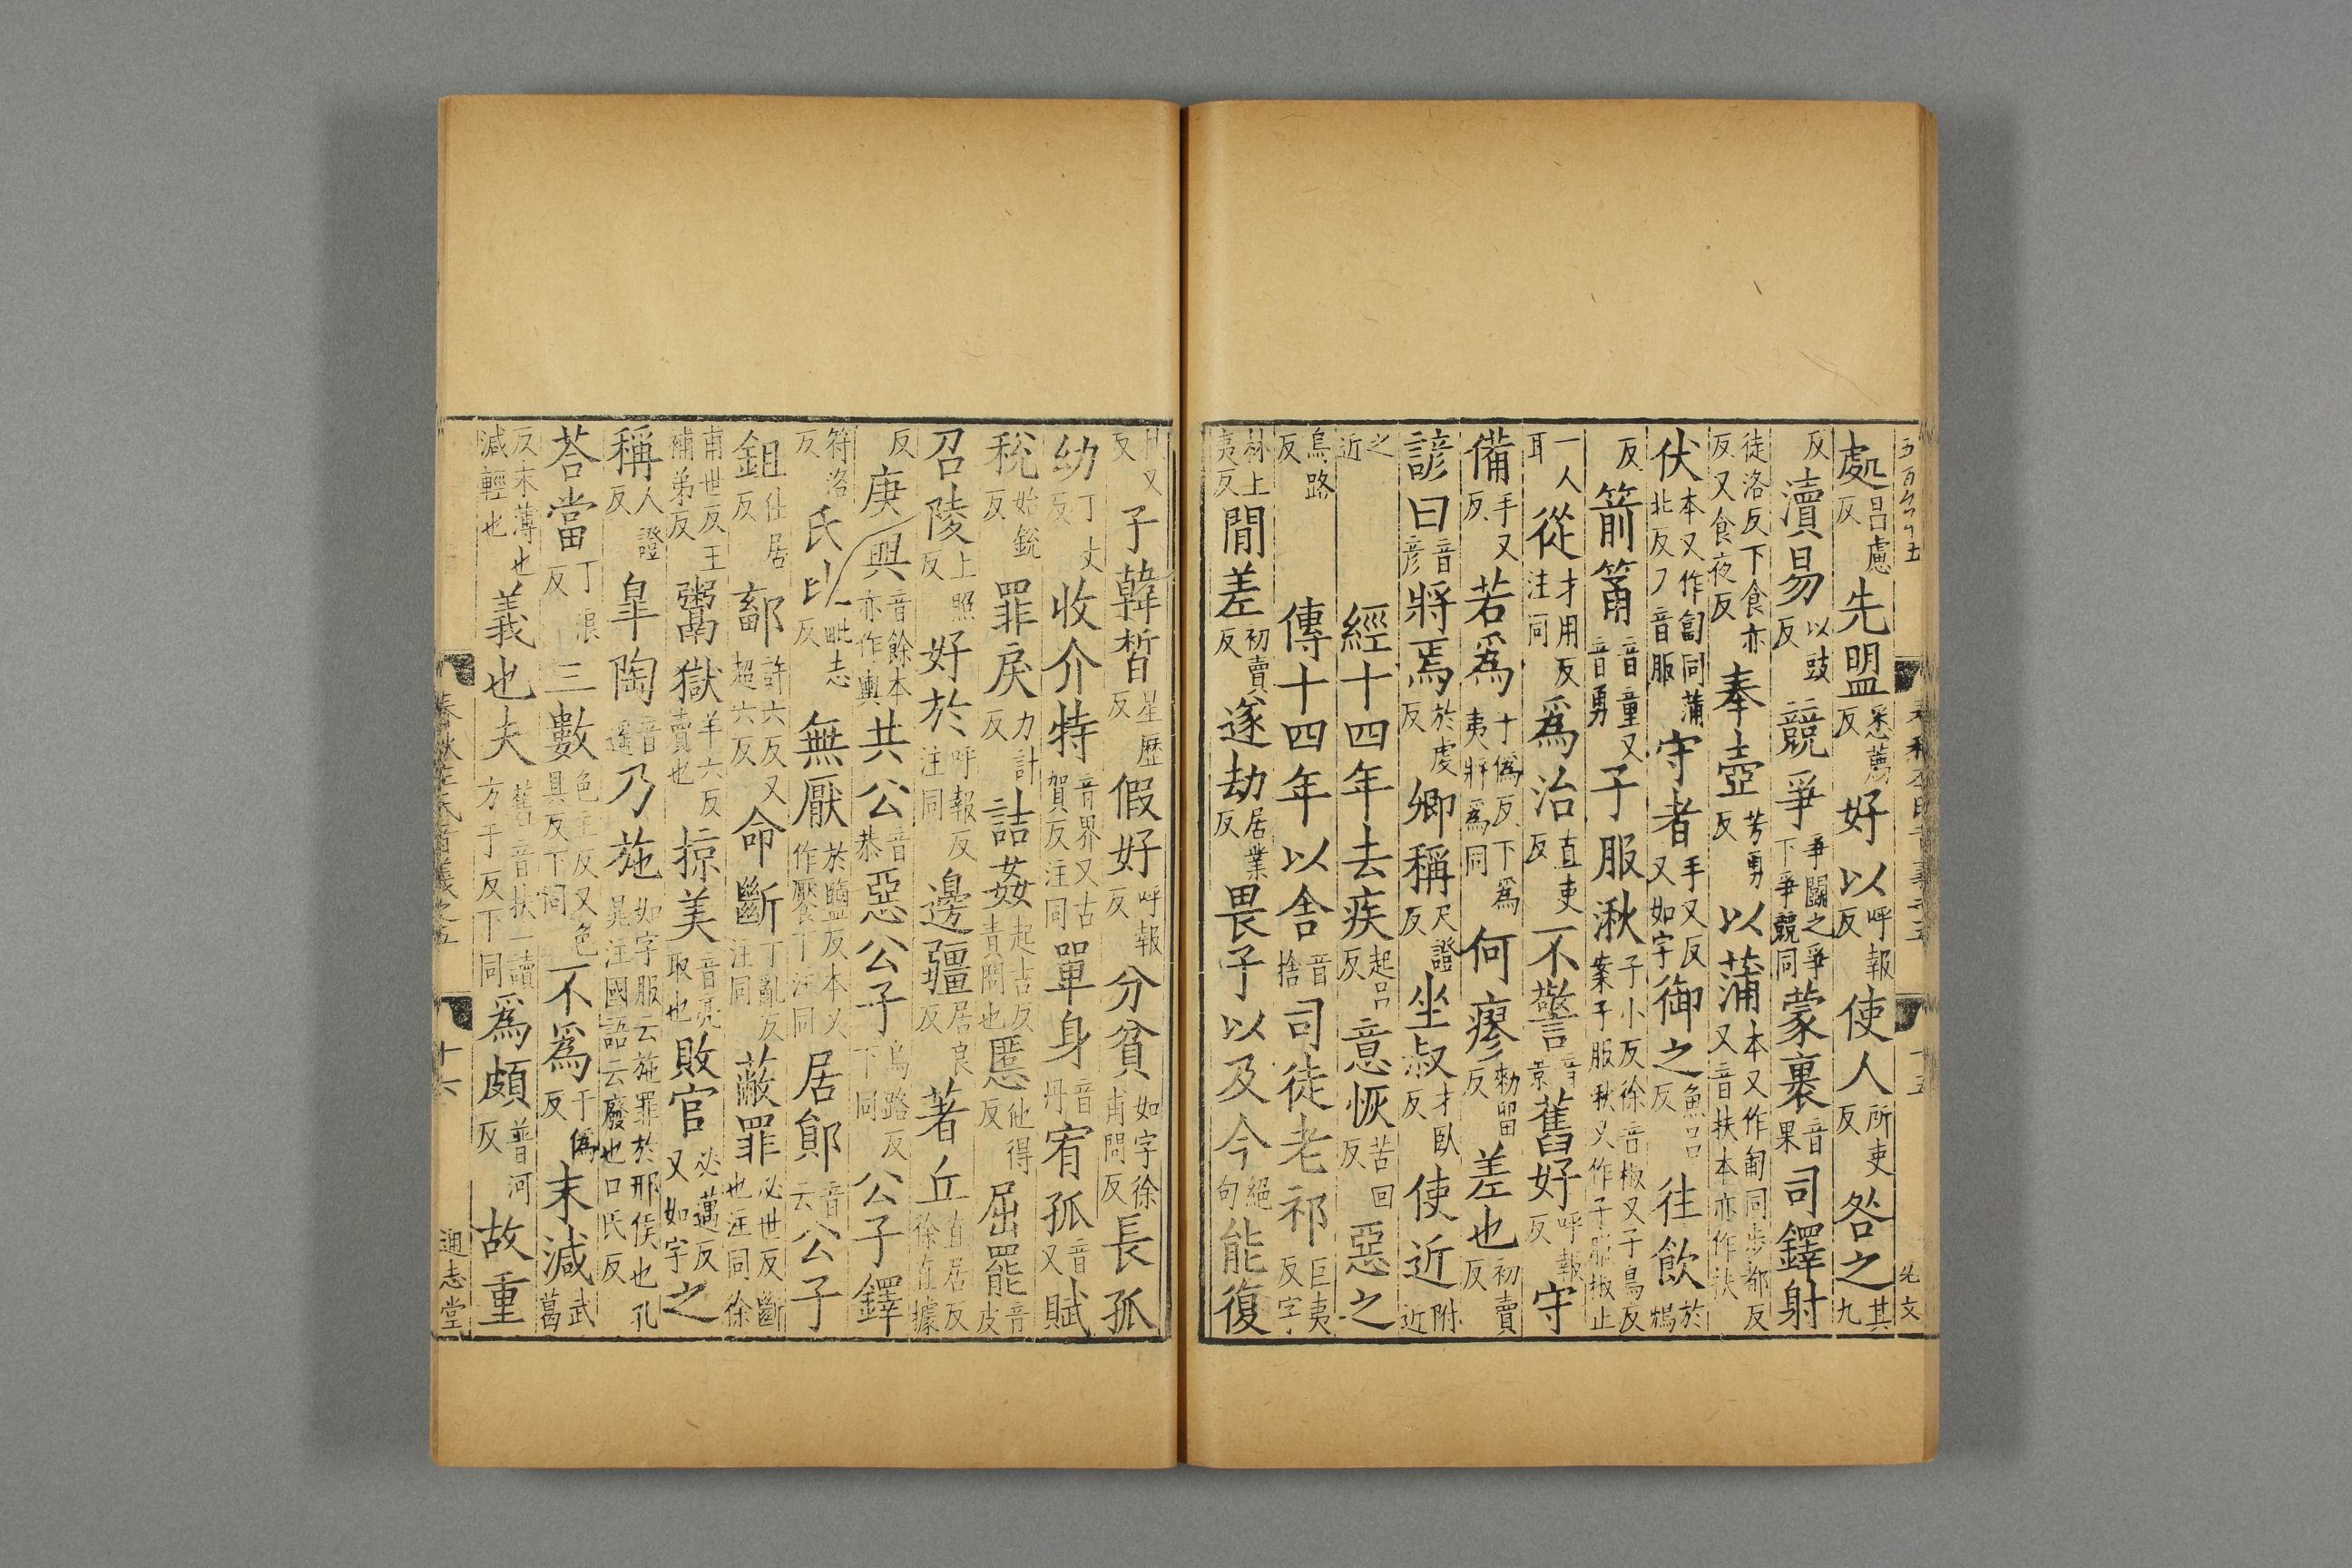 春秋左氏音義之五 十五 先文
處昌慮反先盟悉薦反好以呼報反使人所吏反咎之其九
反瀆易以豉反競爭爭鬭之爭下爭競同蒙裹音果司鐸射
徒洛反下食亦反又食夜反奉壺芳勇反以蒲本又作匍同步都反又音扶本亦作扶
伏本又作匐同蒲北反又音服守者手又反又如字御之魚呂反往飲於鴆
反箭筩音童又音勇子服湫子小反徐音椒又子鳥反案子服湫又作子服椒止
一人耳從才用反注同爲治直吏反不警音景舊好呼報反守
備手又反若爲于僞反下爲夷將爲同何瘳勑留反差也初賣反
諺曰音彦將焉於虔反卿稱尺證反坐叔才臥反使近附近
之近經十四年去疾起呂反意恢苦回反惡之
烏路反傳十四年以舍音捨司徒老祁巨夷反字
林上夷反間差初賣反遂劫居業反畏子以及今絕句能復
又反子韓晳星歷反假好呼報反分貧如字徐甫問反長孤
幼丁丈反收介特音界又古賀反注同單身音丹宥孤音又賦
稅始銳反罪戾力計反詰姦起吉反責問也慝他得反屈罷音皮
召陵上照反好於呼報反注同邊疆居良反著丘直居反徐直據
反庚與音餘本亦作輿共公音恭惡公子烏路反下同公子鐸
符洛反氏比毗志反無厭於鹽反本又作饜下注同居鄖音云公子
鉏仕居反鄐許六反又超六反命斷丁亂反注同蔽罪必世反斷也注同徐
甫世反王補弟反鬻獄羊六反賣也掠美音亮取也敗官必邁反又如字之
稱人證反皐陶音遥乃施如字服云施罪於邢侯也孔晁注國語云廢也口氏反
荅當丁浪反三數色主反又色具反下同不爲于僞反末減武葛
反末薄也減輕也義也夫舊音扶一讀方于反下同爲頗普河反故重
春秋左氏音義之五 十六 通志堂